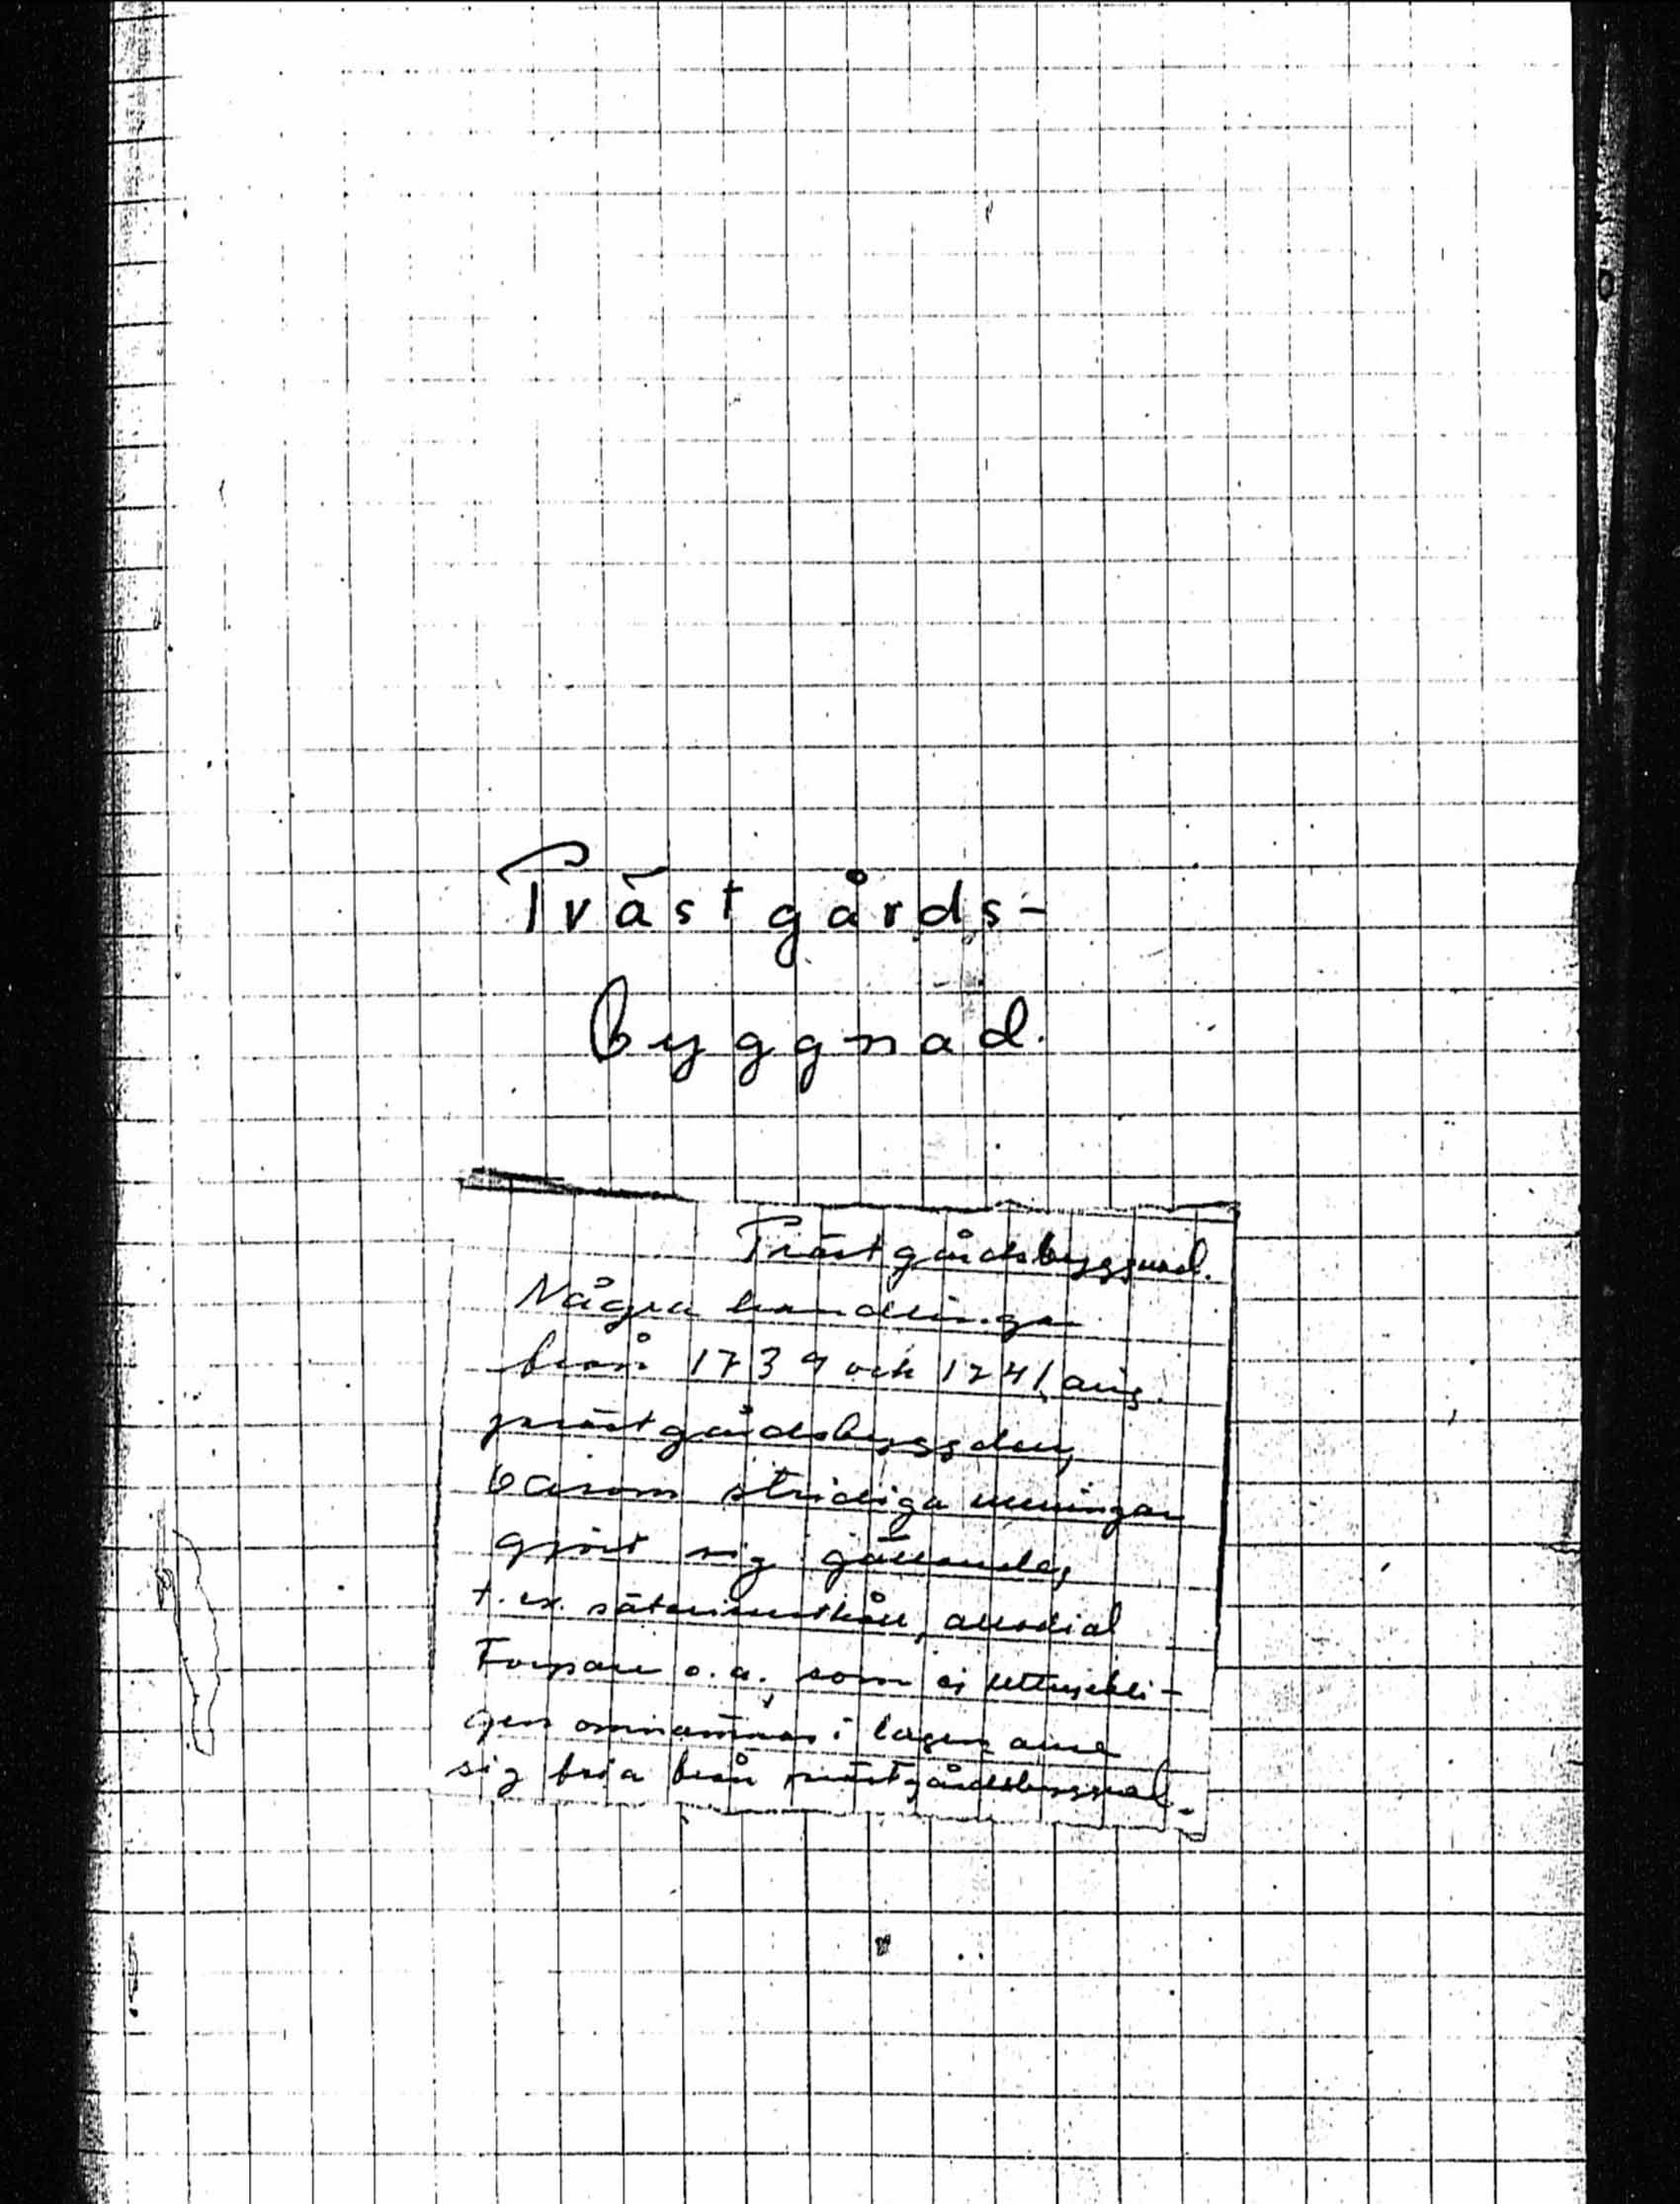 Prästgårds-
byggnad.
Prästgårdsbyggnad.
Några handlingar
från 1739 och 1741 ang.
prästgårdsbyggden,
varom stridiga meningar
gjort sig gällande,
t. ex. allodial
Torpare o.a., som ej uttryckli-
gen omnämnas i lagen anse
sig fria från prästgårdsbyggnad.